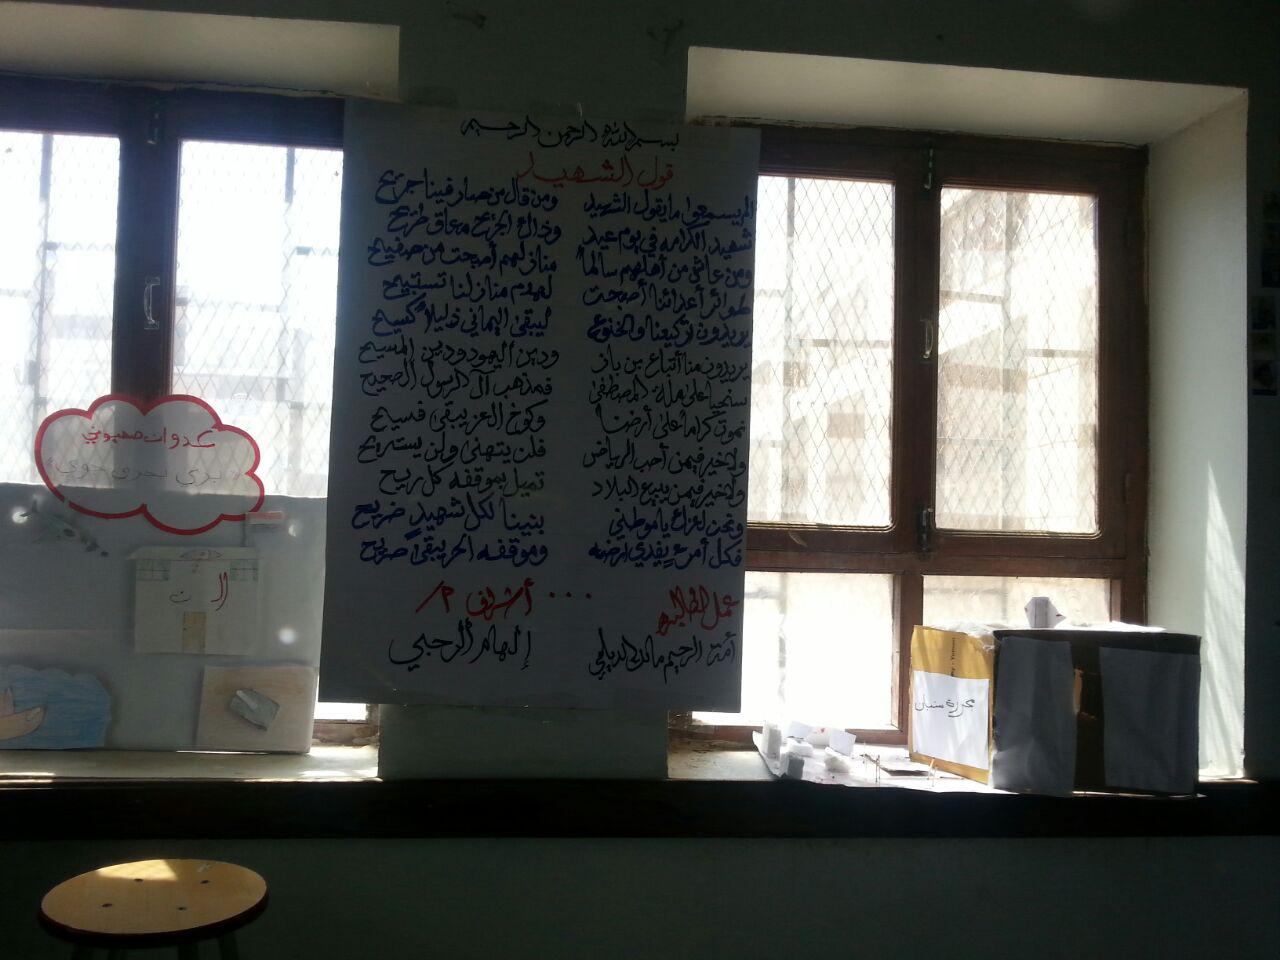 بسم الله الرحمن الرحيم
قول الشهيد
ألم يسمعوا ما يقول الشهيد ومن قال من صار فينا جريح
شهيد الكرامه في يوم عيد وذاع الجرح معاق طريح
ومن عاش من أهلهم سالماً منازلهم أصبحت من صفيح
طوائر أعدائنا أصبحت لهدم منازلنا تستبيح
يريدون تركيعنا والخنوع ليبقى اليماني ذليلاً كسيح
يريدون منا أتباع بن باز ودين اليهود ودين المسيح
سنحيا على ملة المصطفى فمذهب آل الرسول الصحيح
نموت كراماً على أرضنا وكوخ العز يبقى فسيح
ولا خير فيمن أحب الرياض فلن يتهنى ولن يستريح
ولا خير فيمن يبيع البلاد تميل بموقفه كل ريح
ونحن لعزك يا موطني بنينا لكل شهيد ضريح
فكل أمرءٍ يفدي أرضه وموقفه الحر يبقى صريح
عمل الطالبه ... أشراف م/
أمة الرحيم مالك الديلمي إلهام الرحبي
عدوان صهيوني